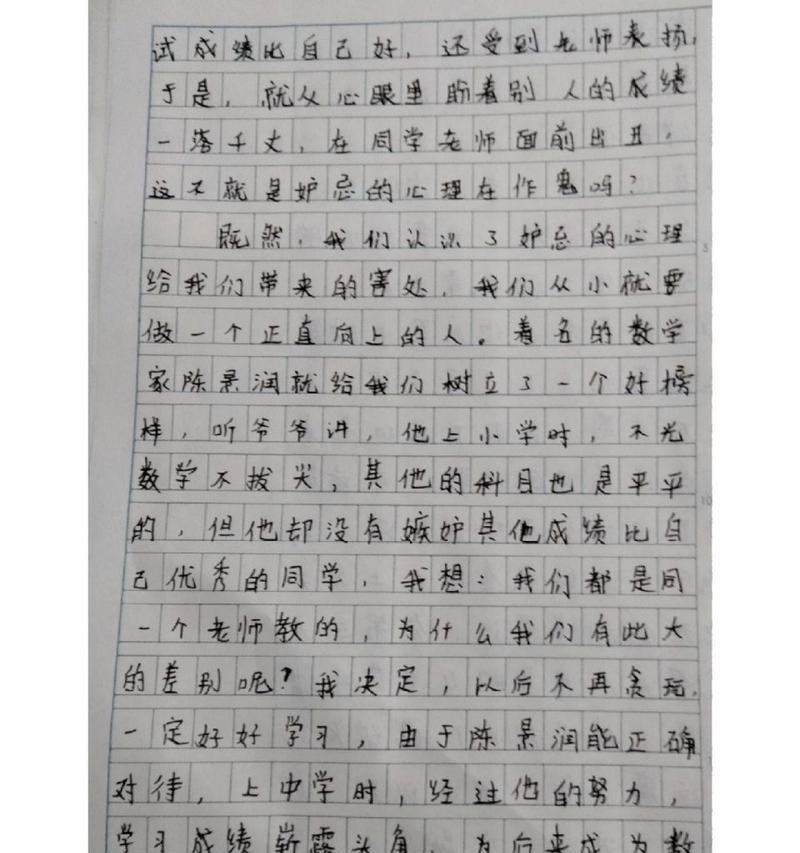 试成绩比自己好，还受到老师表扬，
于是，就从心眼里盼着别人的成绩
一落千丈，在同学老师面前出丑，
这不就是妒忌的心理在作鬼吗？
既然，我们认识了妒忌的心理
给我们带来的害处，我们从小就要
做一个正直向上的人。着名的数学
家陈景润就给我们树立了一个好榜
样，听爷爷讲，他上小学时，不光
数学不拔尖，其他的科目也是平平
的，但他却没有嫉妒其他成绩比自
己优秀的同学，我想：我们都是同
一个老师教的，为什么我们有此大
的差别呢？我决定，以后不再贪玩，
一定好好学习，由于陈景润能正确
对待，上中学时，经过他的努力，
学习成绩崭露头角，为后来成为数
5
10